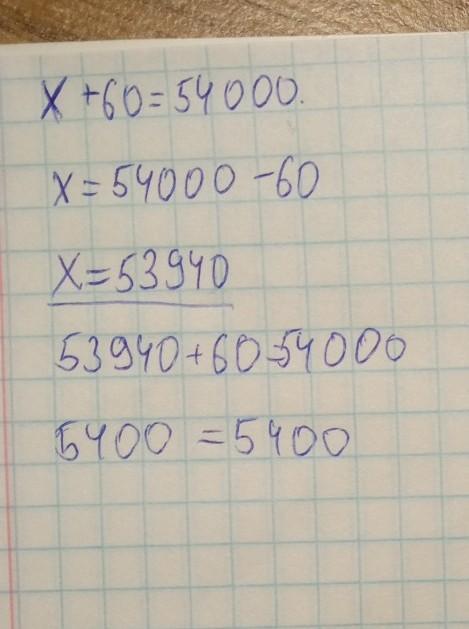 x + 60 = 54000.
x = 54000 - 60
x = 53940
53940 + 60 = 54000
5400 = 5400